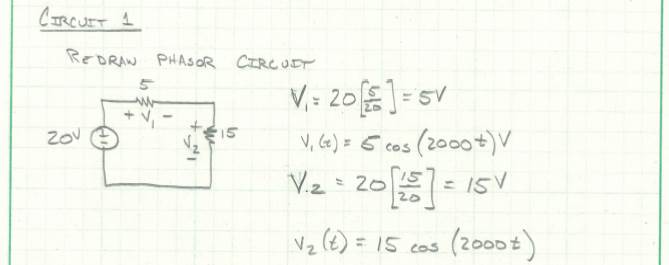 CIRCUIT 1
REDRAW PHASOR CIRCUIT
5
+ V₁ -
20V
+
V₂
-
15
V₁ = 20[5/20] = 5V
V₁(t) = 5 cos(2000t)V
V.2 = 20[15/20] = 15V
V₂(t) = 15 cos (2000t)